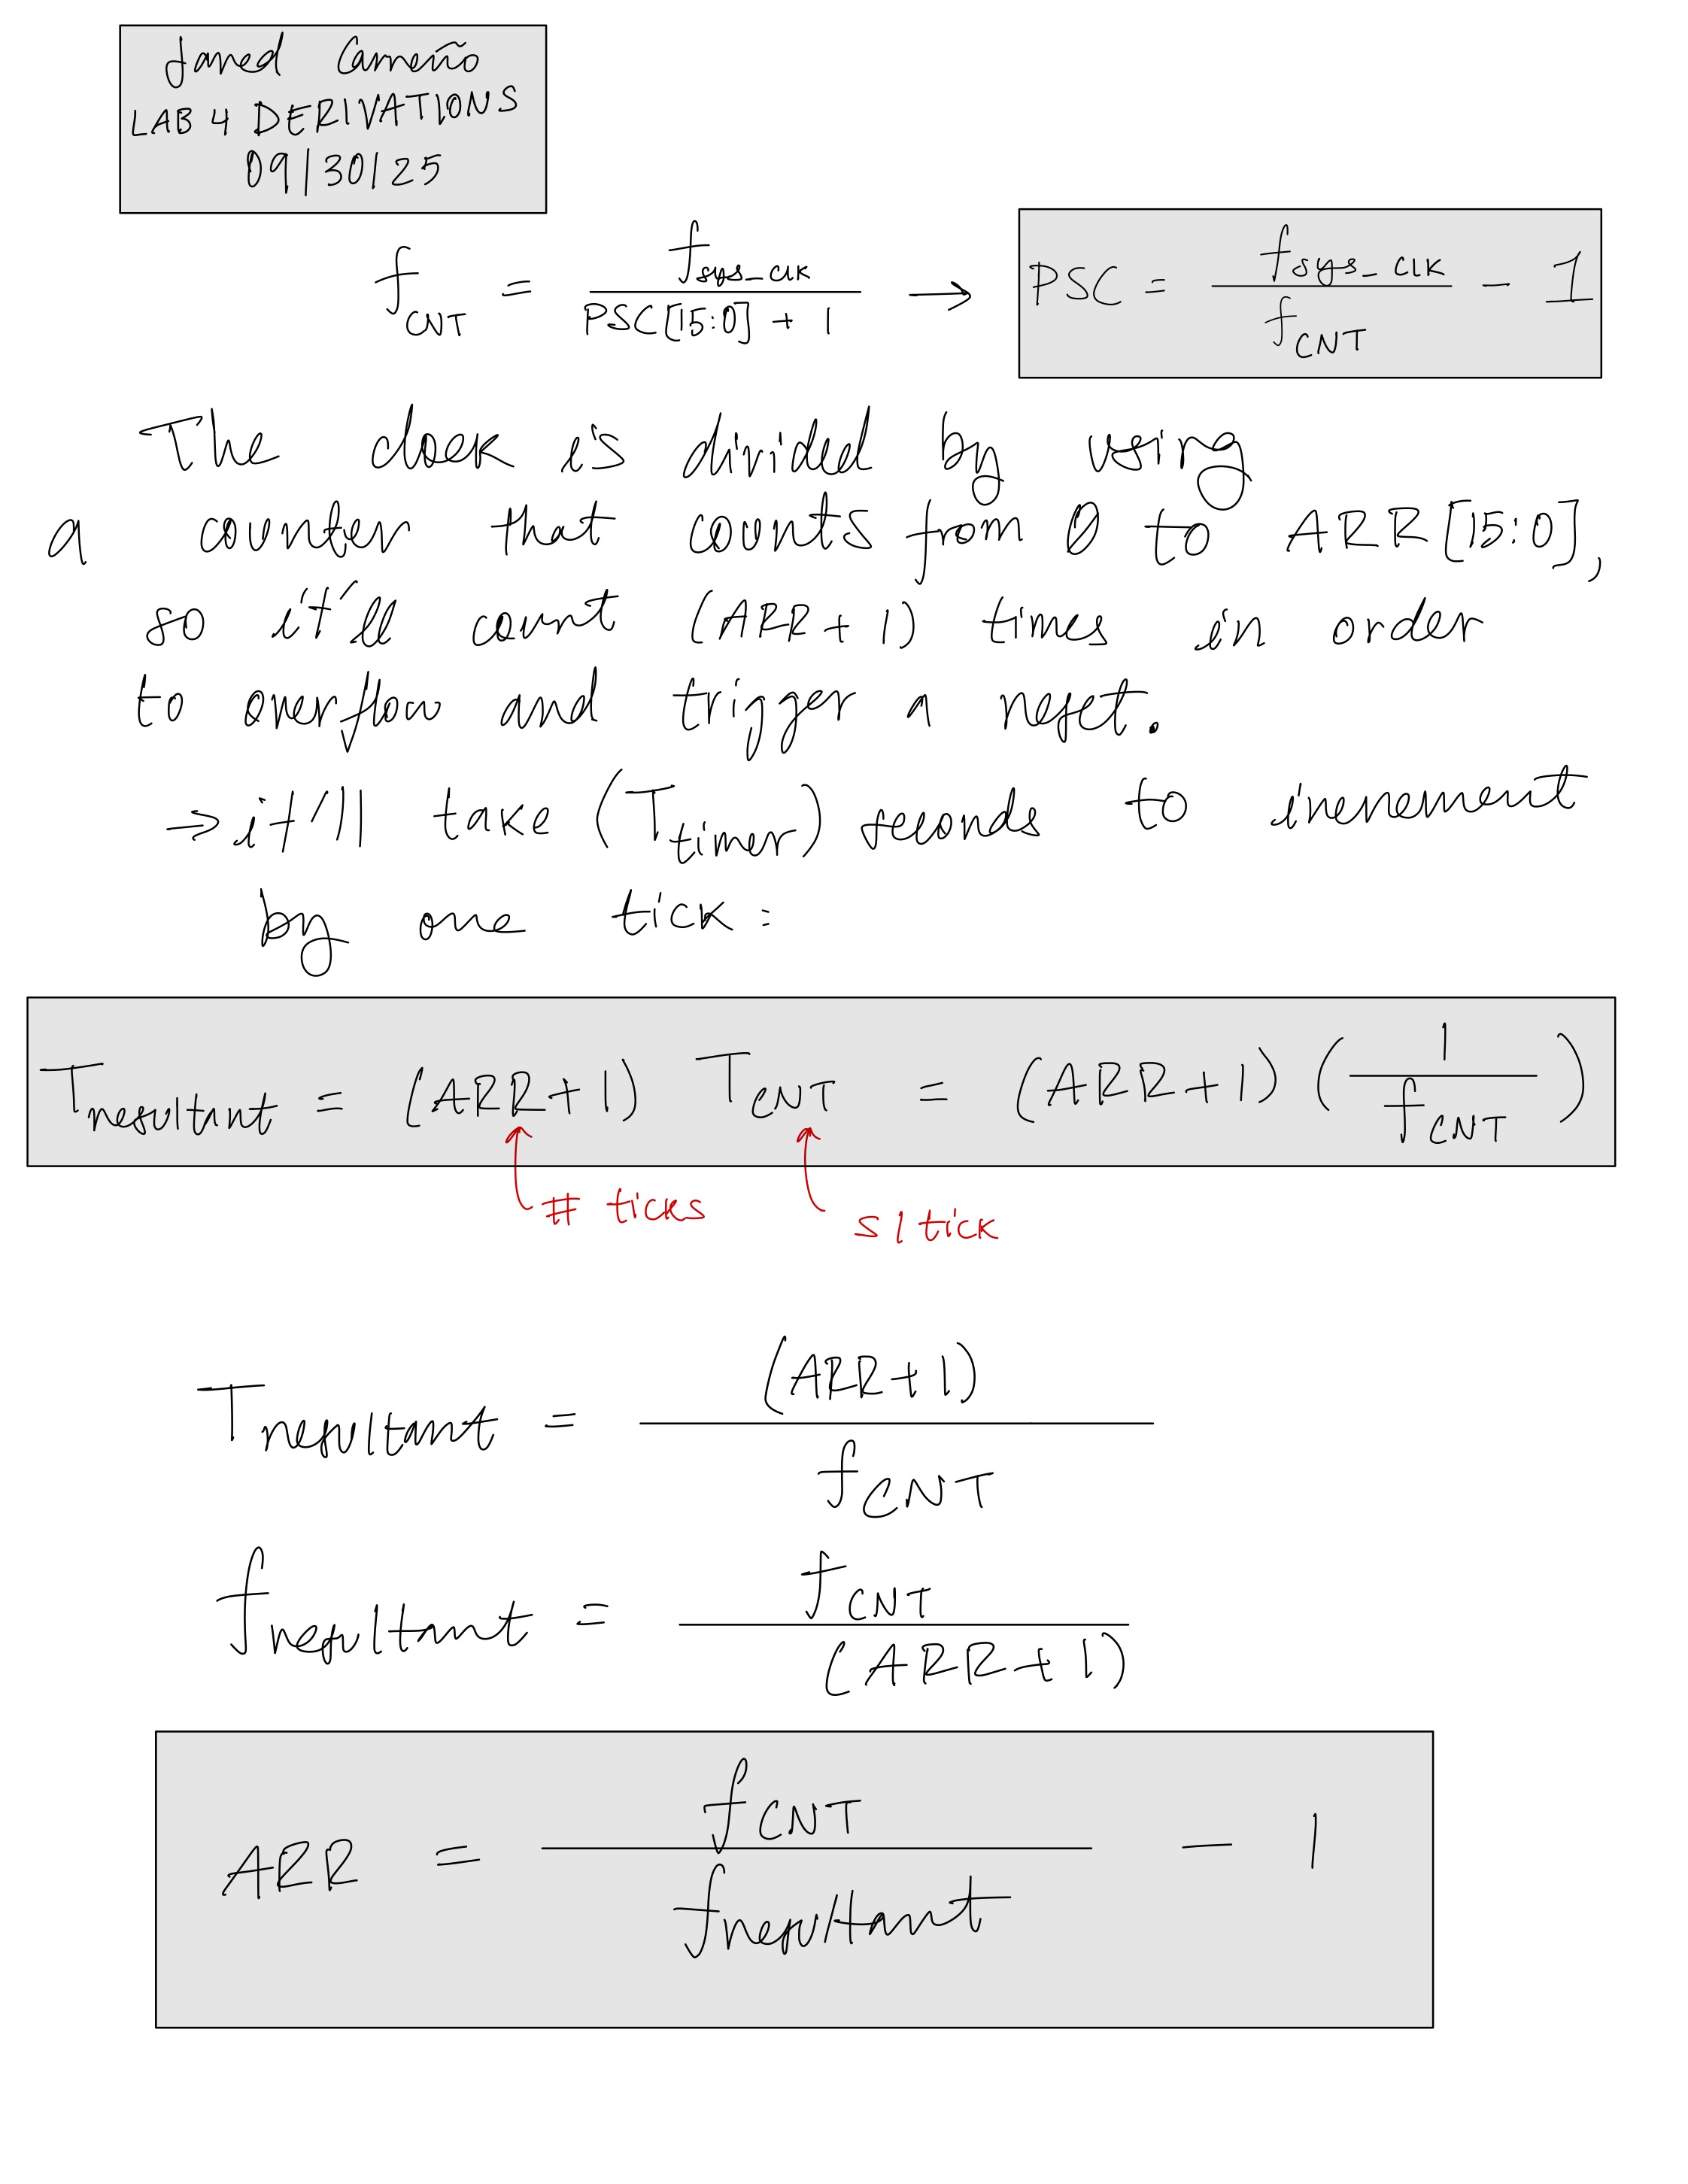 Jared Carreño
LAB 4 DERIVATIONS
09/30/25
f_CNT = f_sys_clk / (PSC[15:0] + 1) → PSC = f_sys_clk / f_CNT - 1
The clock is divided by using
a counter that counts from 0 to ARR[15:0],
so it'll count (ARR+1) times in order
to overflow and trigger a reset.
→ it'll take (T_timer) seconds to increment
by one tick:
T_resultant = (ARR+1) T_CNT = (ARR+1) (1 / f_CNT)
# ticks
s/tick
T_resultant = (ARR+1) / f_CNT
f_resultant = f_CNT / (ARR+1)
ARR = f_CNT / f_resultant - 1